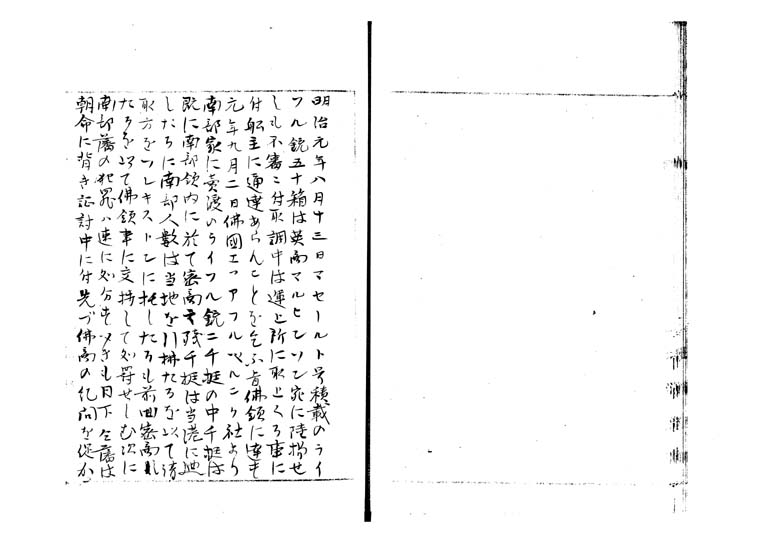 明治元年八月十三日マセールト号積載のライ
フル銃五十箱は英商マルヒソン宛に陸揚せ
しも不審に付取調中は運上所に取上くる事に
付船主に通達あらんことを乞ふ旨佛領に達す
元年九月二日佛國エフアフルベルニウ社より
南部家に賣渡のライフル銃二千挺の中千挺は
既に南部領内に於て密商す残千挺は当港に廻
したるに南部人数は当地を引拂たるを以て請
取方をフレキストンに托したるも前回密商
たるを以て佛領事に交捗して処罸せしむ次に
南部藩の犯罪ハ速に処分すべきも目下仝藩は
朝命に背き征討中に付先づ佛商の糺問を促か